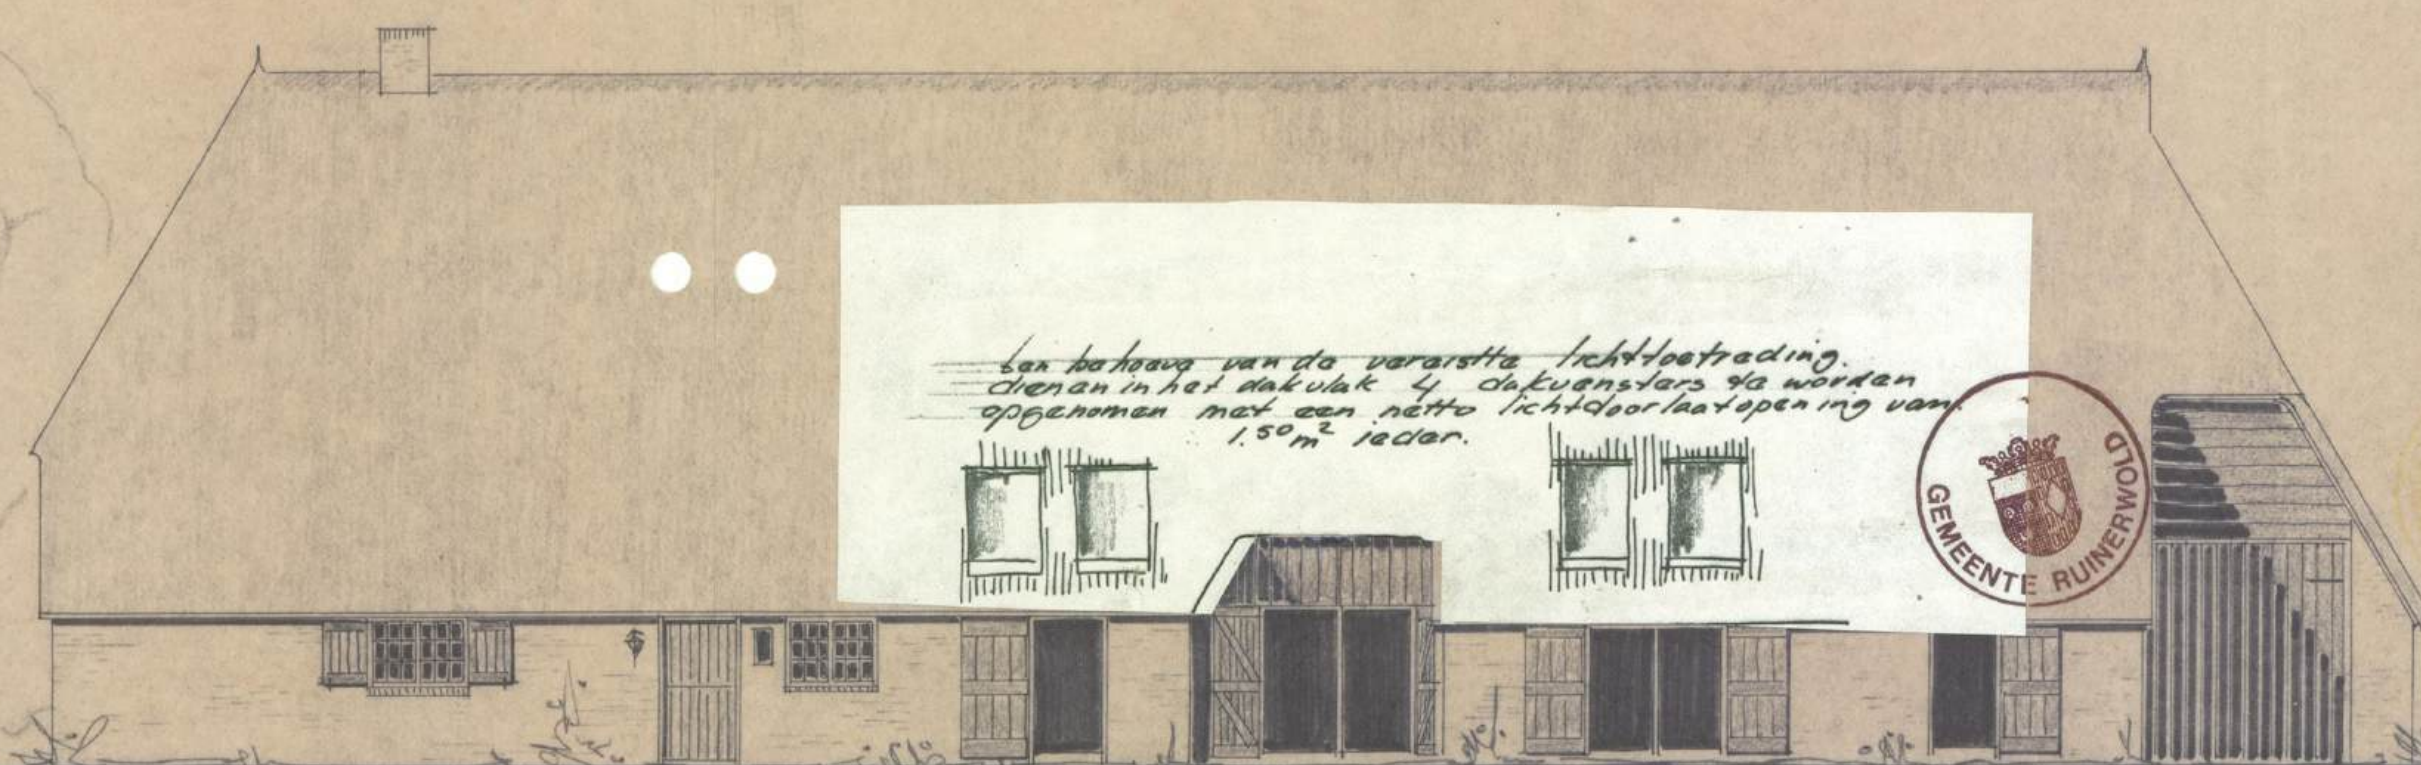 ten behoeve van de vereistte lichttoetreding.
dienen in het dakvlak 4 dakvensters te worden
opgenomen met een netto lichtdoorlaatopening van
1.50 m² ieder.
GEMEENTE RUINERWOLD